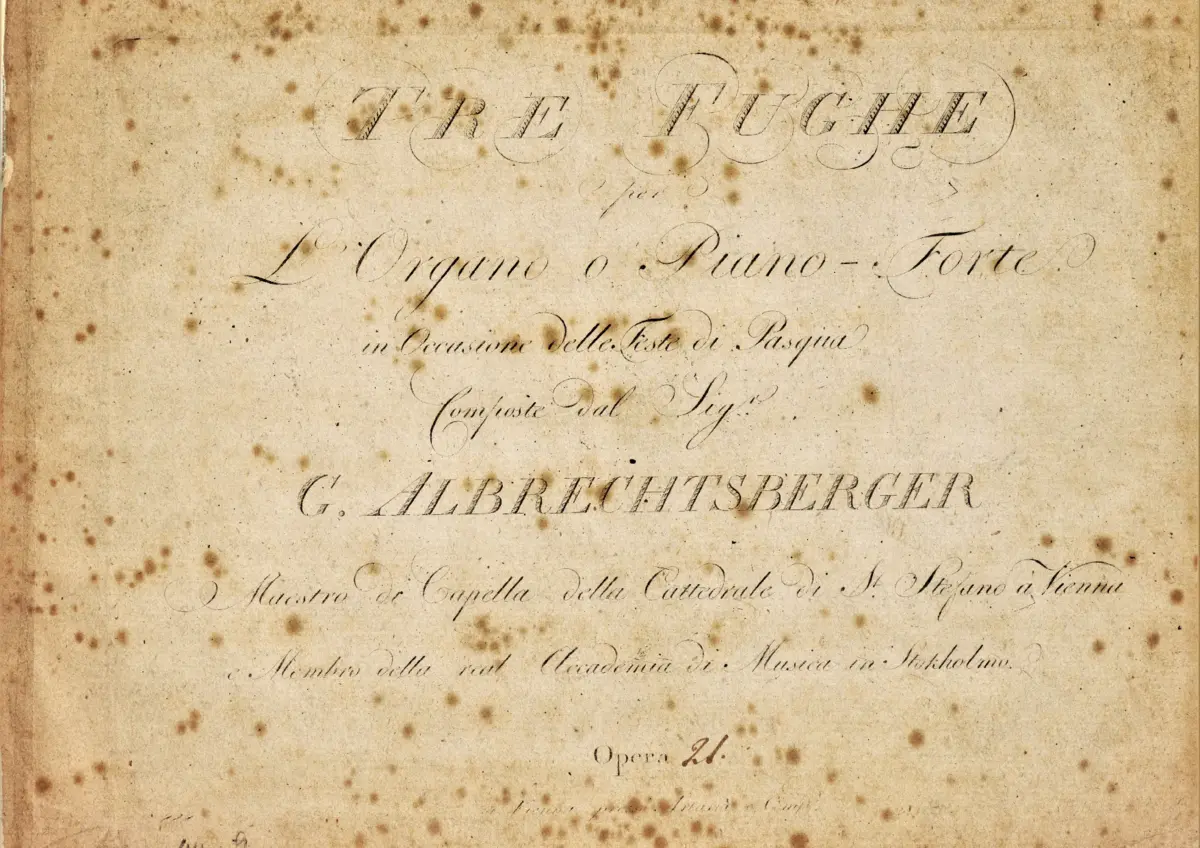 TRE FUGHE
per
L'Organo o Piano-Forte
in Occasione delle Feste di Pasqua
Composte dal Sigr.
G. ALBRECHTSBERGER
Maestro di Capella della Cattedrale di St. Stefano à Vienna
e Membro della real Accademia di Musica in Stokholmo.
Opera 21.
Vienna